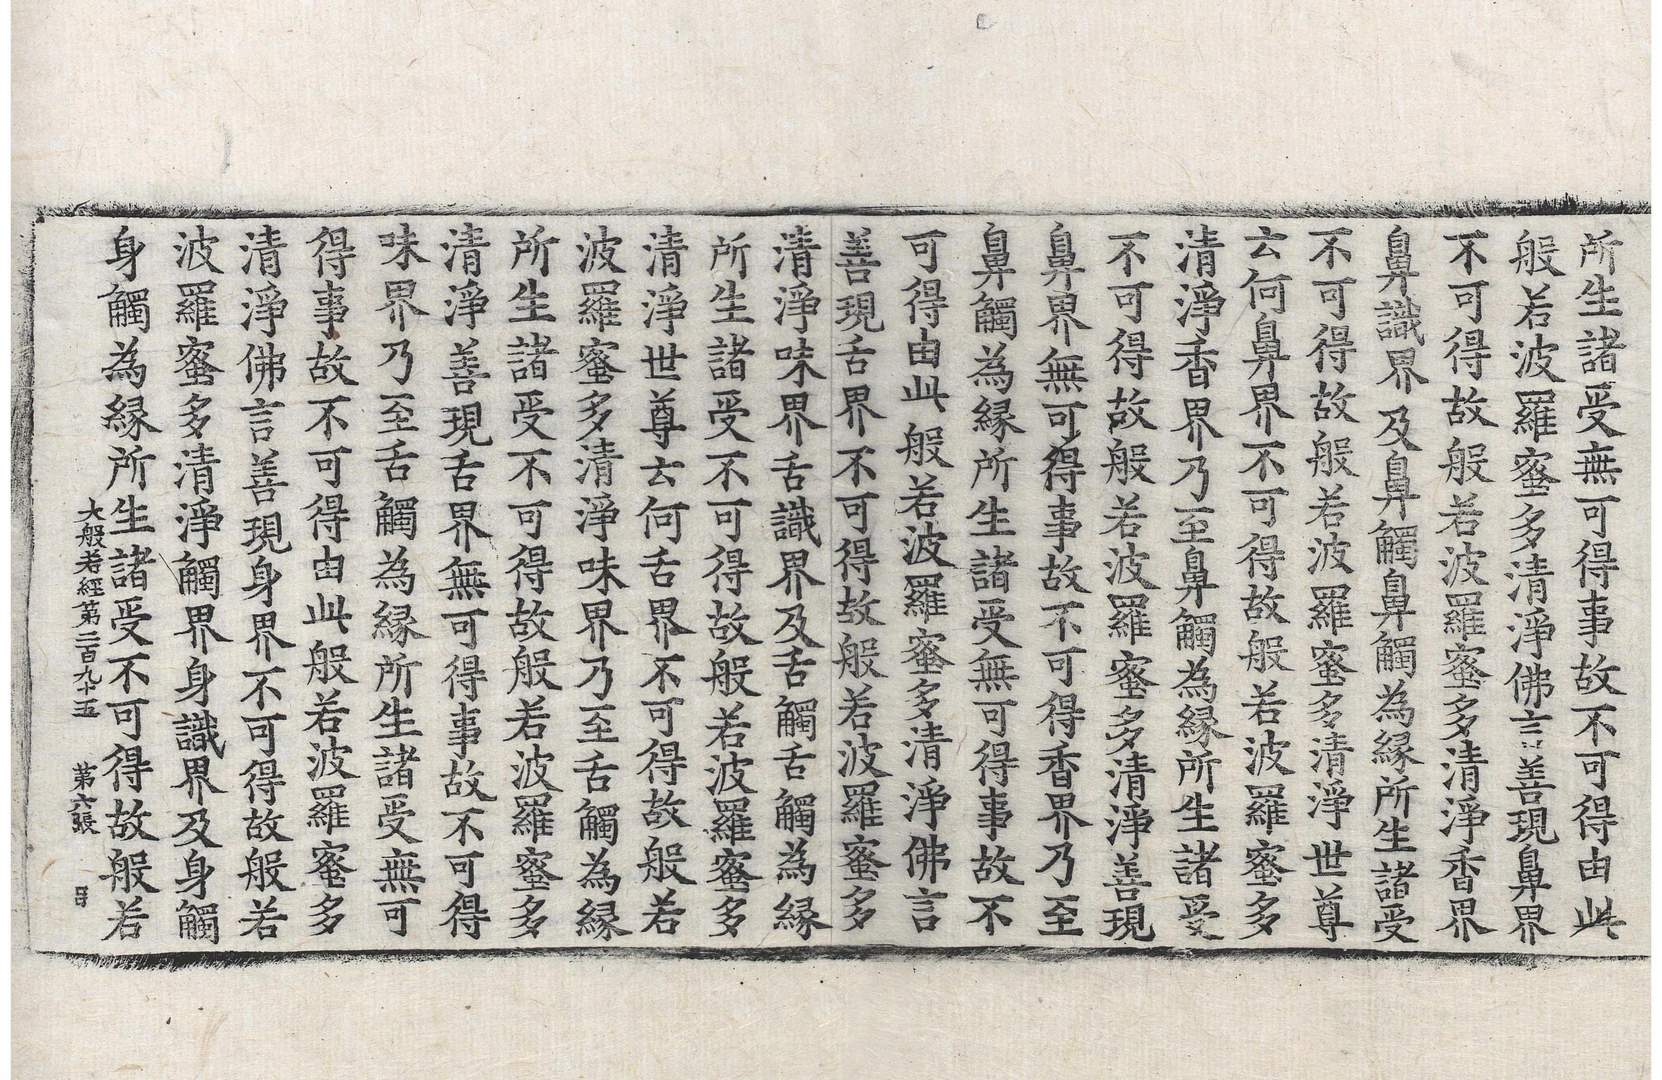 所生諸受無可得事故不可得由此
般若波羅蜜多清淨佛言善現鼻界
不可得故般若波羅蜜多清淨香界
鼻識界及鼻觸鼻觸為緣所生諸受
不可得故般若波羅蜜多清淨世尊
云何鼻界不可得故般若波羅蜜多
清淨香界乃至鼻觸為緣所生諸受
不可得故般若波羅蜜多清淨善現
鼻界無可得事故不可得香界乃至
鼻觸為緣所生諸受無可得事故不
可得由此般若波羅蜜多清淨佛言
善現舌界不可得故般若波羅蜜多
清淨味界舌識界及舌觸舌觸為緣
所生諸受不可得故般若波羅蜜多
清淨世尊云何舌界不可得故般若
波羅蜜多清淨味界乃至舌觸為緣
所生諸受不可得故般若波羅蜜多
清淨善現舌界無可得事故不可得
味界乃至舌觸為緣所生諸受無可
得事故不可得由此般若波羅蜜多
清淨佛言善現身界不可得故般若
波羅蜜多清淨觸界身識界及身觸
身觸為緣所生諸受不可得故般若
大般若經第二百九十五 第六張 呂